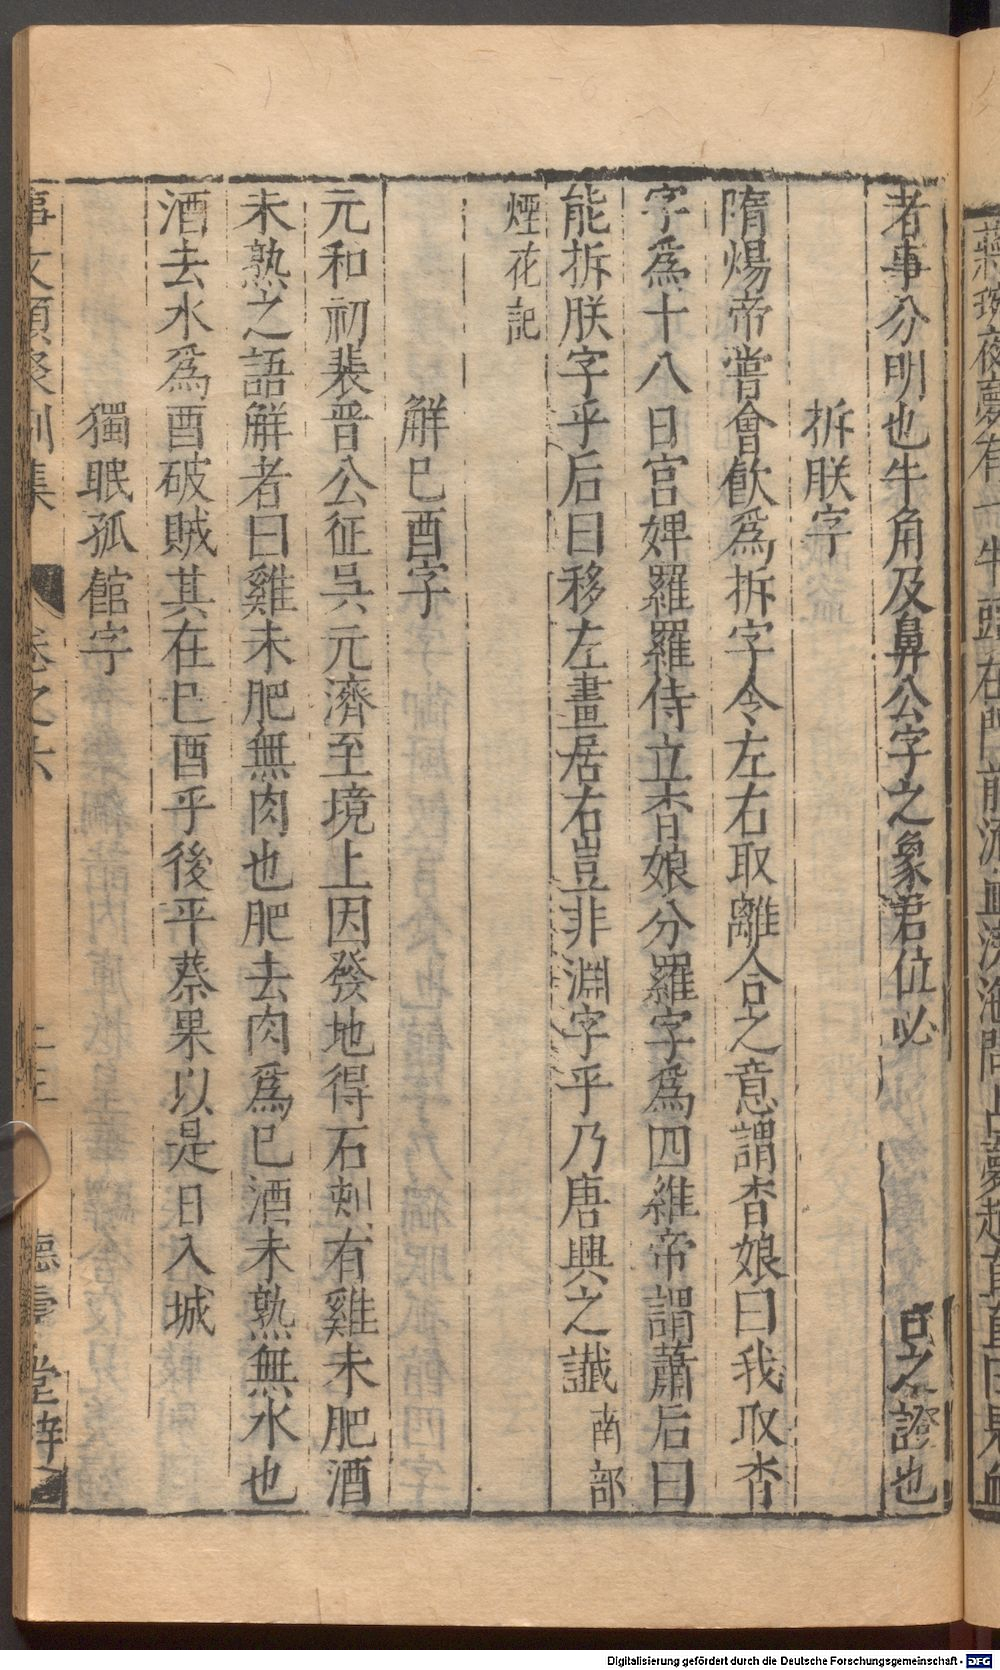 蔣琬夜夢有一牛頭在門前流血
者事分明也牛角及鼻公字之象君位必
吉之證也
拆朕字
隋煬帝嘗會飲爲拆字令左右取離合之意謂杳娘曰我取杳
字爲十八日宮婢羅羅侍立杳娘分羅字爲四維帝謂蕭后曰
能拆朕字乎后曰移左畫居右豈非淵字乎乃唐興之讖南部
煙花記
解巳酉字
元和初裴晋公征吳元濟至境上因發地得石刻有雞未肥酒
未熟之語解者曰雞未肥無肉也肥去肉爲巳酒未熟無水也
酒去水爲酉破賊其在巳酉乎後平蔡果以是日入城
獨眠孤館字
事文類聚別集
卷之六
德壽堂梓
Digitalisierung gefördert durch die Deutsche Forschungsgemeinschaft - DFG